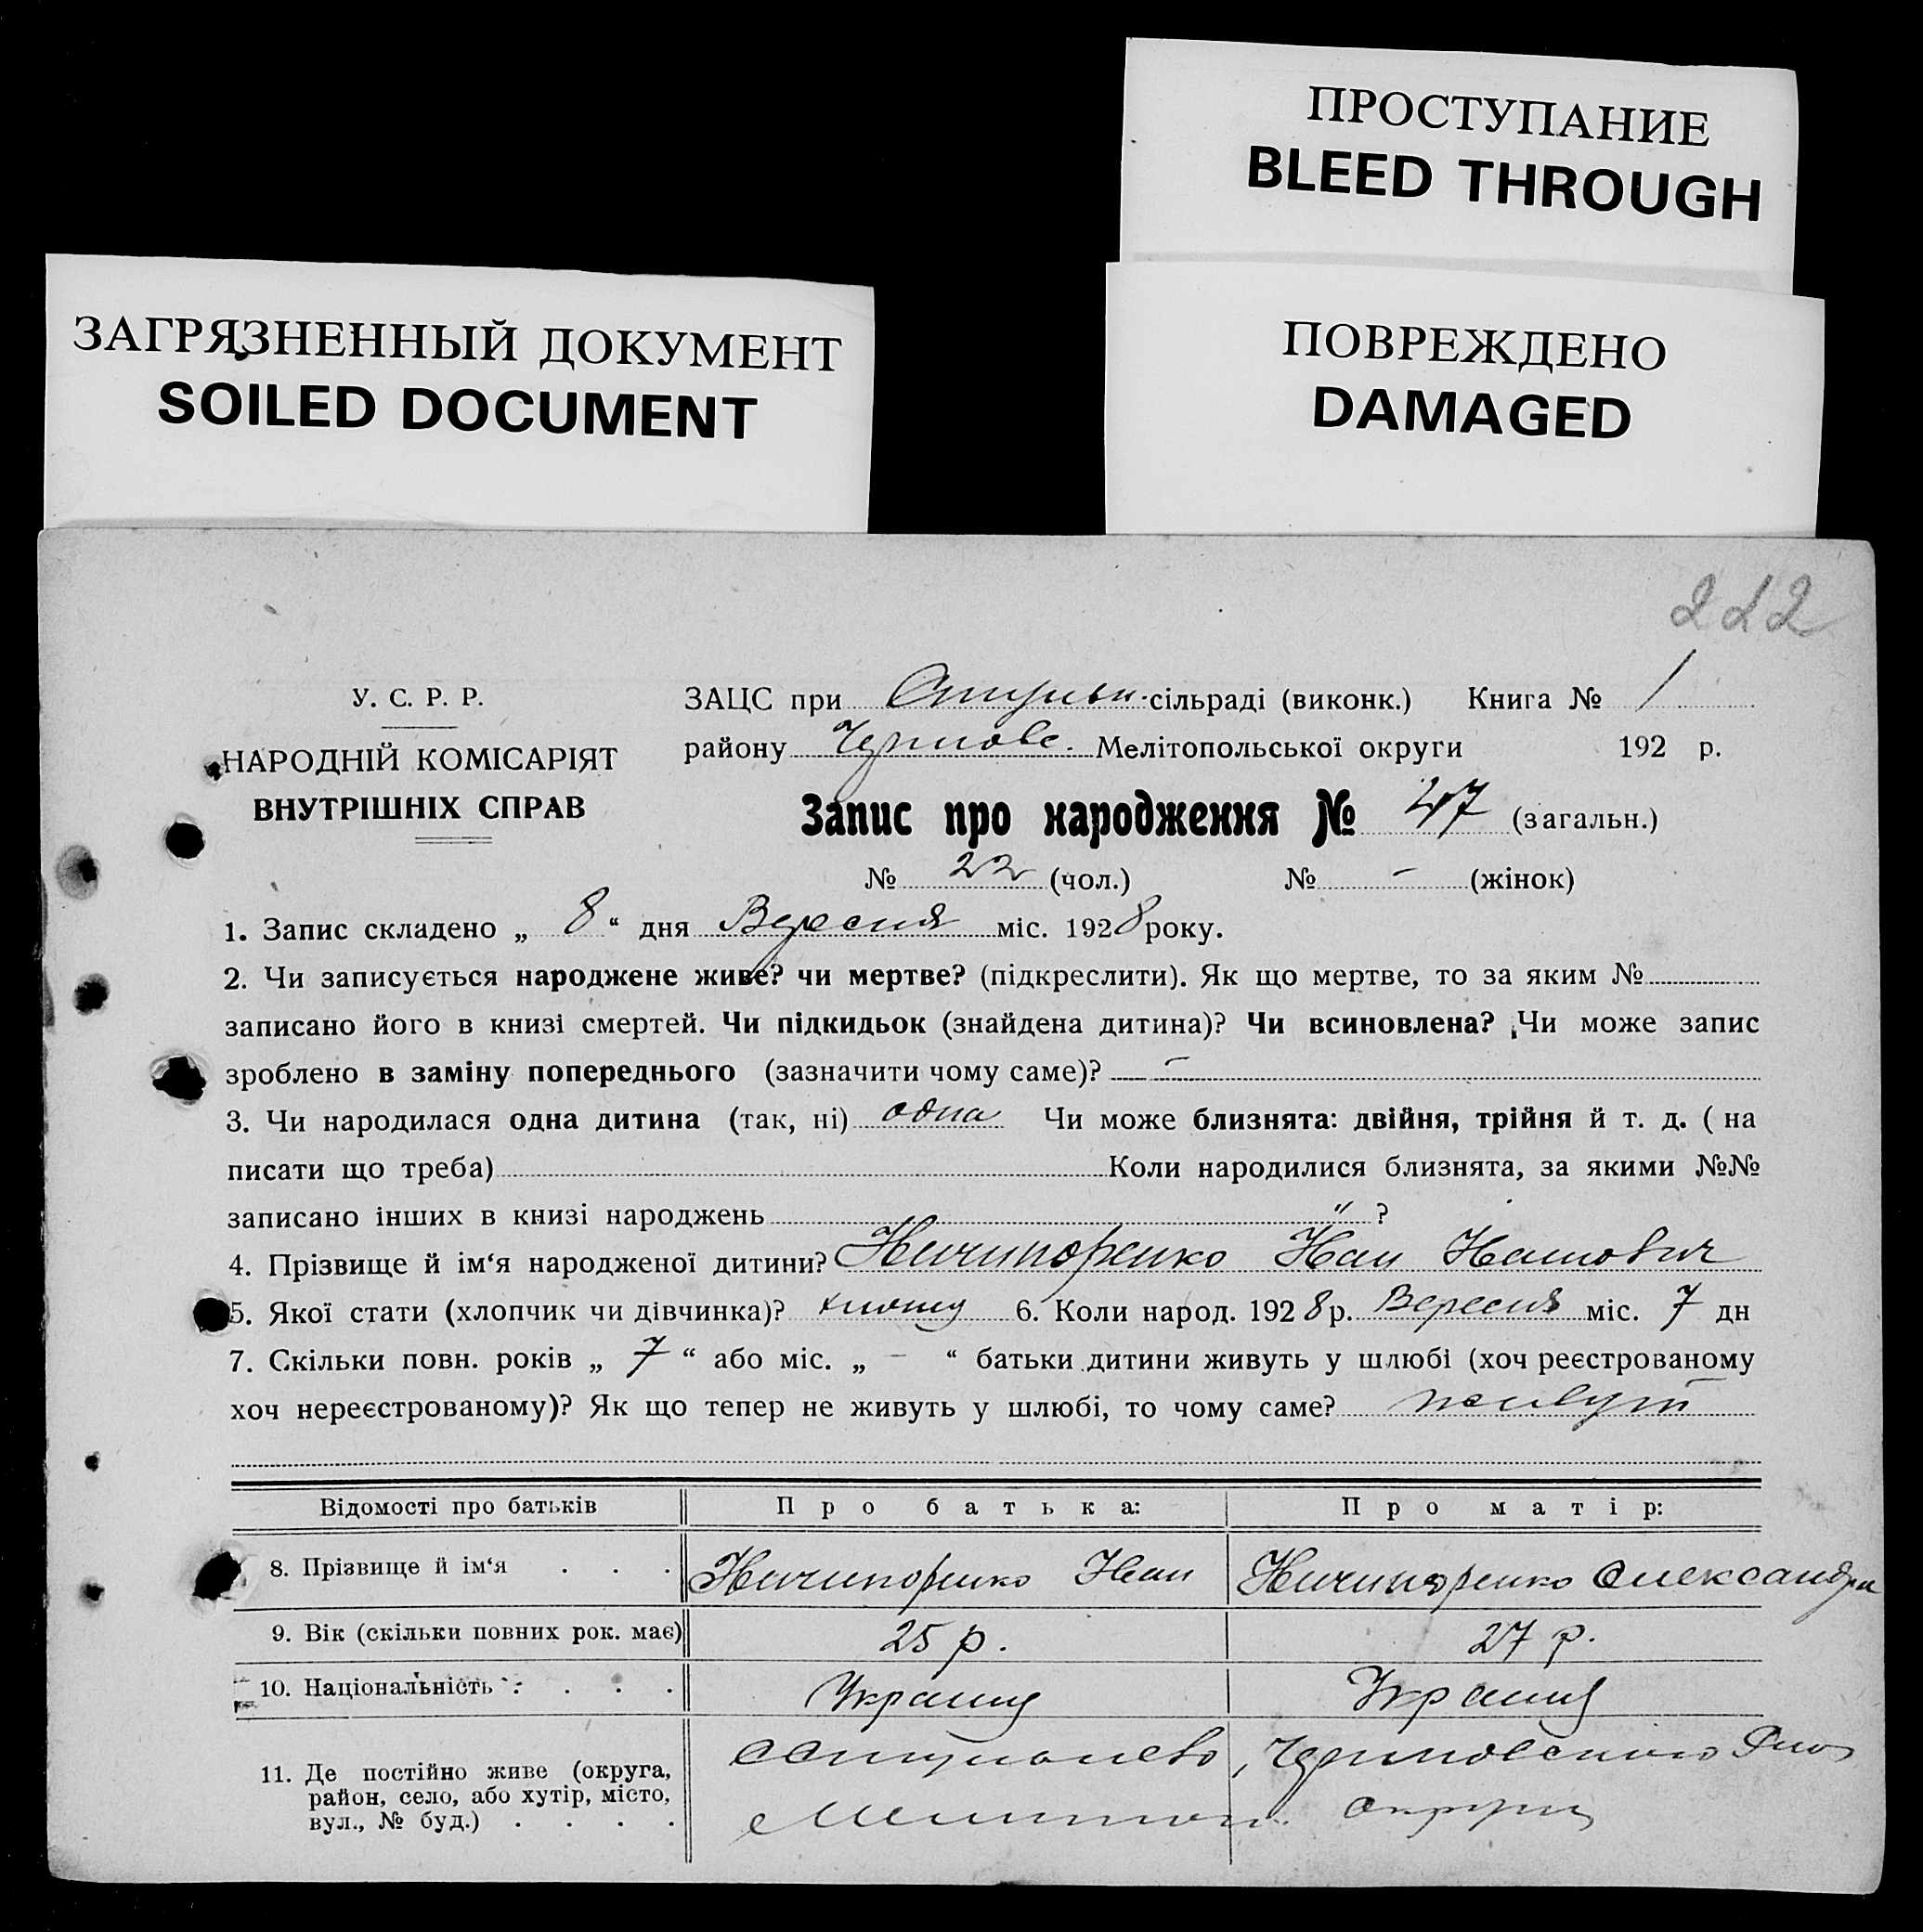 ПРОСТУПАНИЕ
BLEED THROUGH
ЗАГРЯЗНЕННЫЙ ДОКУМЕНТ
SOILED DOCUMENT
ПОВРЕЖДЕНО
DAMAGED
222
У. С. Р. Р.
НАРОДНІЙ КОМІСАРІЯТ
ВНУТРІШНІХ СПРАВ
ЗАЦС при сільраді (виконк.) Книга № 1
району Мелітопольської округи 192 р.
Запис про народження № 47 (загальн.)
№ 22 (чол.) № - (жінок)
1. Запис складено „ 8 “ дня Вересня міс. 1928 року.
2. Чи записується народжене живе? чи мертве? (підкреслити). Як що мертве, то за яким №
записано його в книзі смертей. Чи підкидьок (знайдена дитина)? Чи всиновлена? Чи може запис
зроблено в заміну попереднього (зазначити чому саме)? —
3. Чи народилася одна дитина (так, ні) одна Чи може близнята: двійня, трійня й т. д. ( на
писати що треба) Коли народилися близнята, за якими №№
записано інших в книзі народжень " ?
4. Прізвище й ім‘я народженої дитини? Ничипоренко Иван Иванович
5. Якої стати (хлопчик чи дівчинка)? 6. Коли народ. 1928 р. Вересня міс. 7 дн
7. Скільки повн. років „ 7 “ або міс. „ - “ батьки дитини живуть у шлюбі (хоч реєстрованому
хоч нереєстрованому)? Як що тепер не живуть у шлюбі, то чому саме?
Відомості про батьків Про батька: Про матір:
8. Прізвище й ім‘я . . . Ничипоренко Иван Ничипоренко Олександра
9. Вік (скільки повних рок. має) 25 р. 27 р.
10. Національність . . . . Украинц Украинц
11. Де постійно живе (округа,
район, село, або хутір, місто,
вул., № буд.) . . . . округи